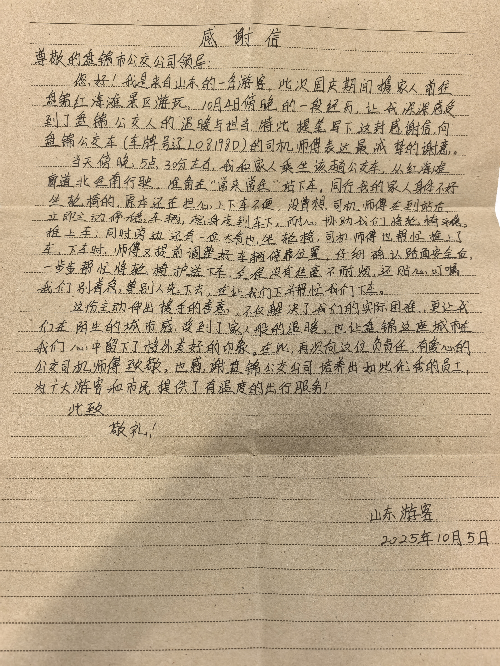 感谢信
尊敬的盘锦市公交公司领导:
您好!我是来自山东的一名游客,此次国庆期间携家人前往
盘锦红海滩景区游玩,10月4日傍晚的一段经历,让我深深感受
到了盘锦公交人的温暖与担当,特此提笔写下这封感谢信,向
盘锦公交车(车牌号辽L08198D)的司机师傅表达最诚挚的谢意。
当天傍晚,5点30分左右,我和家人乘坐该辆公交车,从红海滩
廊道北 行驶,准备在 站下车,同行的家人身体不好
坐轮椅的,原本还在担心上下车不便,没曾想司机师傅在到站后
立即主动停稳车辆, 到车下,耐心协助我们将轮椅
推上车,同时旁边还有一位 也坐轮椅,司机师傅也帮忙推上了
车,下车时,师傅又提前调整好车辆停靠位置,仔细确认路面安全后,
一步步帮忙将轮椅护送下车,全程没有丝毫不耐烦,还贴心叮嘱
我们别着急,等别人先下去,在让我们下并帮忙我们下车。
这份主动伸出援手的善意,不仅解决了我们的实际困难,更让我
们在陌生的城市感受到了家人般的温暖,也让盘锦这座城市在
我们心中留下了格外美好的印象。在此,再次向这位负责任,有爱心的
公交司机师傅致敬,也感谢盘锦公交公司培养出如此优秀的员工,
为广大游客和市民提供了有温度的出行服务!
此致
敬礼!
山东游客
2025年10月5日